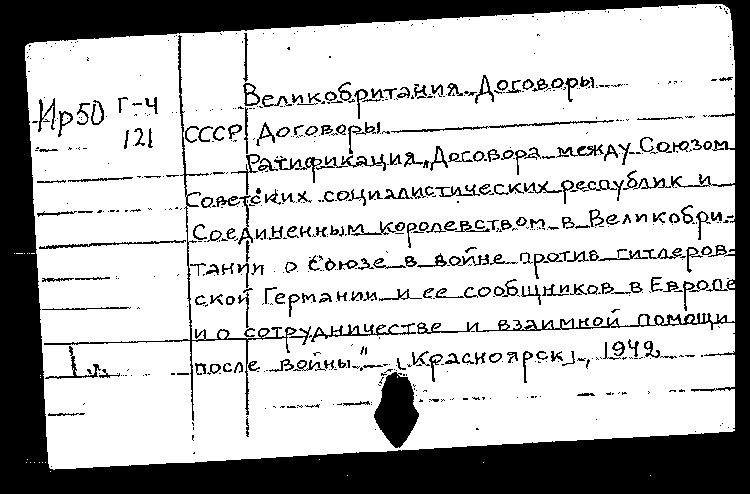 Великобритания. Договоры
Ир50 Г-4
121
СССР. Договоры
Ратификация „Договора между Союзом
Советских социалистических республик и
Соединенным королевством в Великобри-
тании о союзе в войне против гитлеров-
ской Германии и ее сообщников в Европе
и о сотрудничестве и взаимной помощи
после войны" [Красноярск], 1942.
1 л.